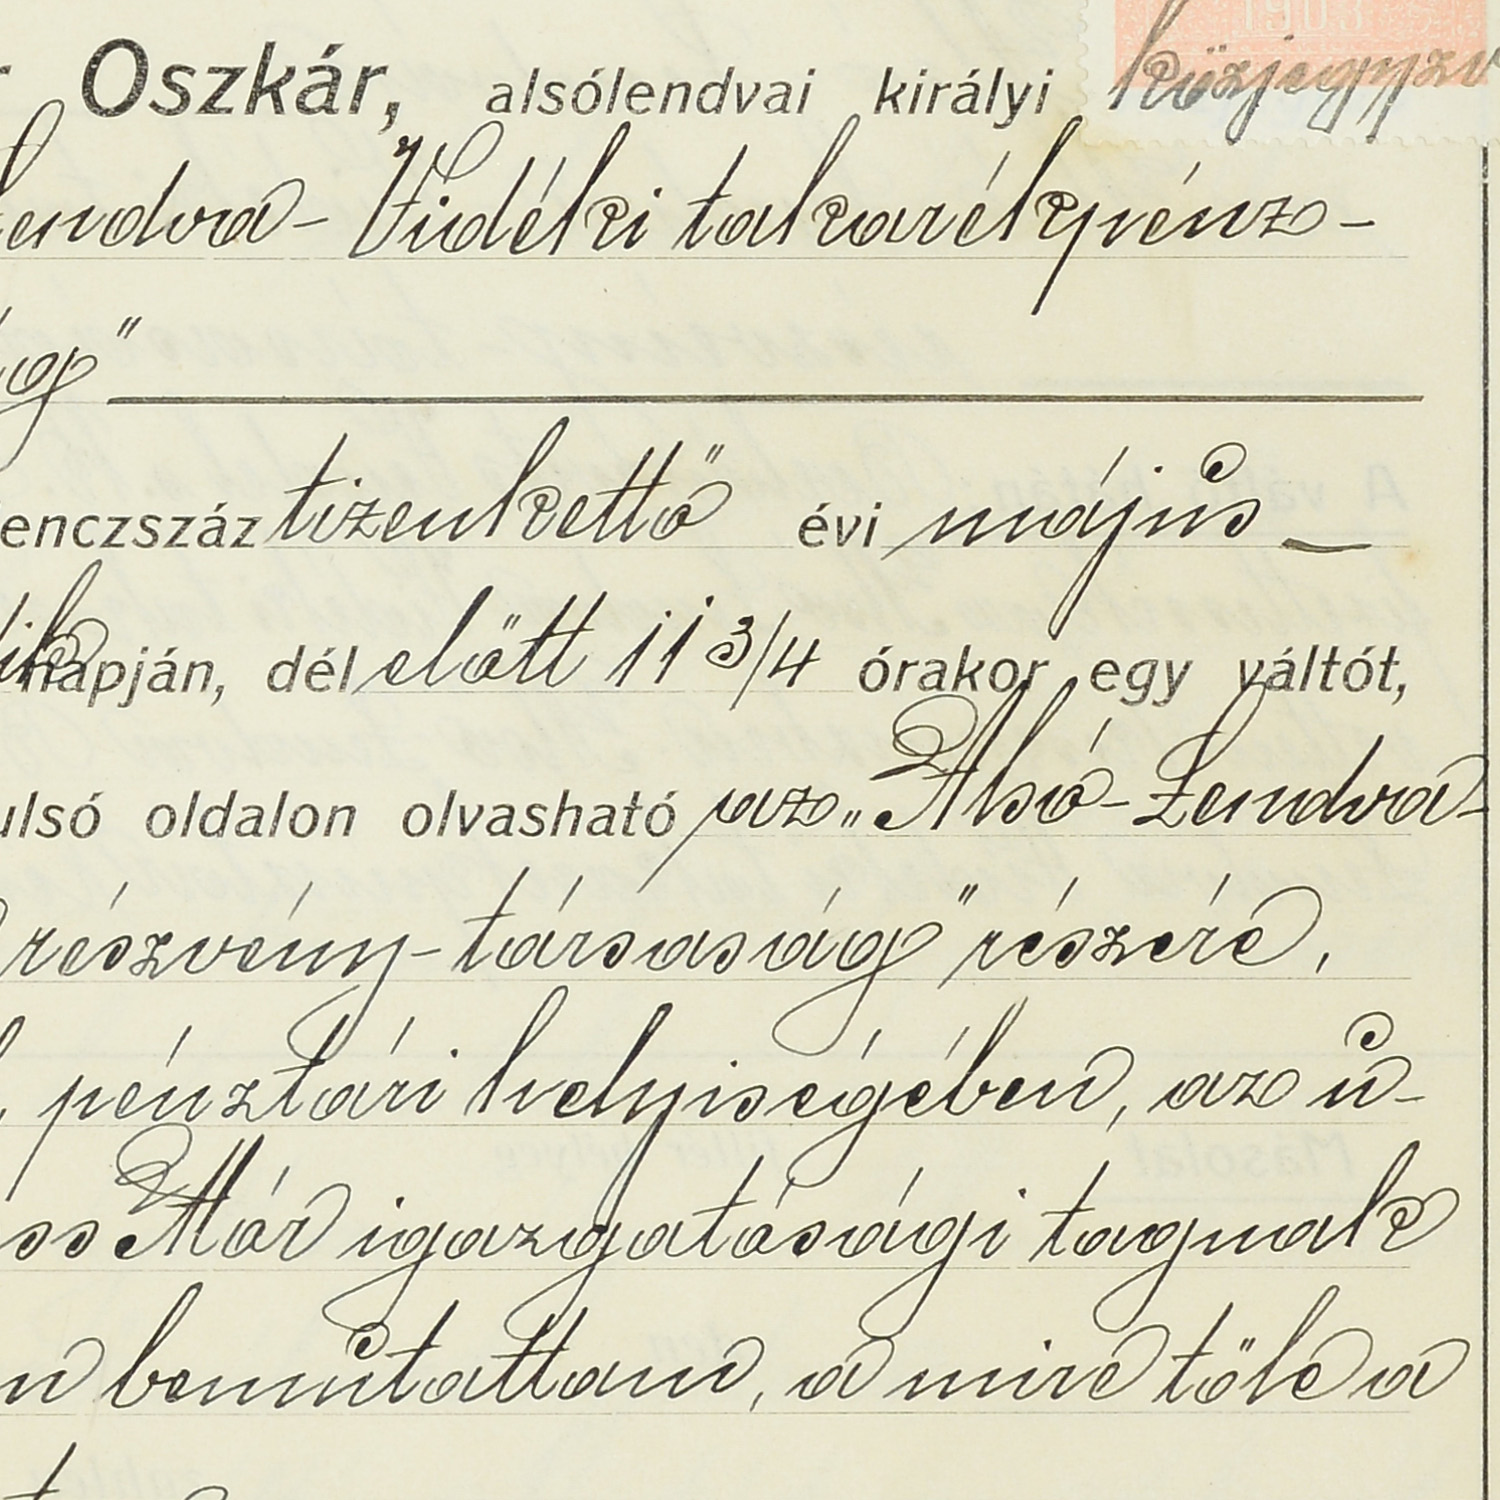 Oszkár, alsólendvai királyi közjegyző
Lendva- Vidéki takarékpénz-
ág"
lenczszáz tizenkettő évi május
ik napján, dél előtt 11 3/4 órakor egy váltót,
tulsó oldalon olvasható az „Alsó-Lendva-
részvény-társaság" részére,
pénztári helyiségében, az ü-
ss Mór igazgatósági tagnak
n bemutattam, a mire tőle a